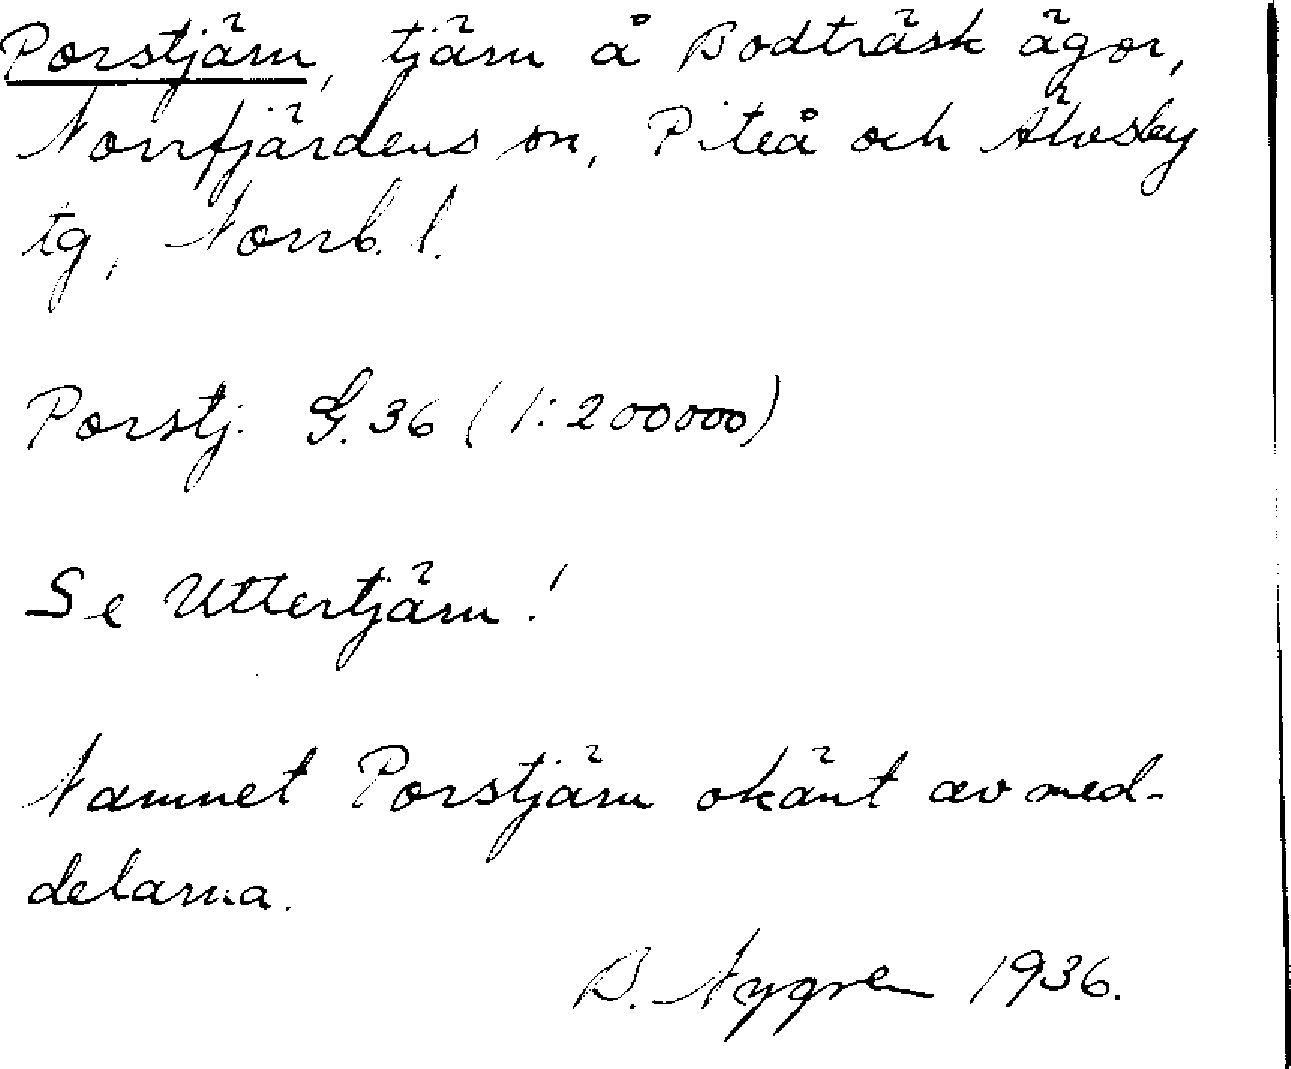 Porstjärn, tjärn å Bodträsk ägor,
Norrfjärdens sn, Piteå och Älvsby
tg, Norrb. l.
Porstj. G. 36 (1:200000)
Se Uttertjärn!
Namnet Porstjärn okänt av med-
delarna.
B. Nygren 1936.